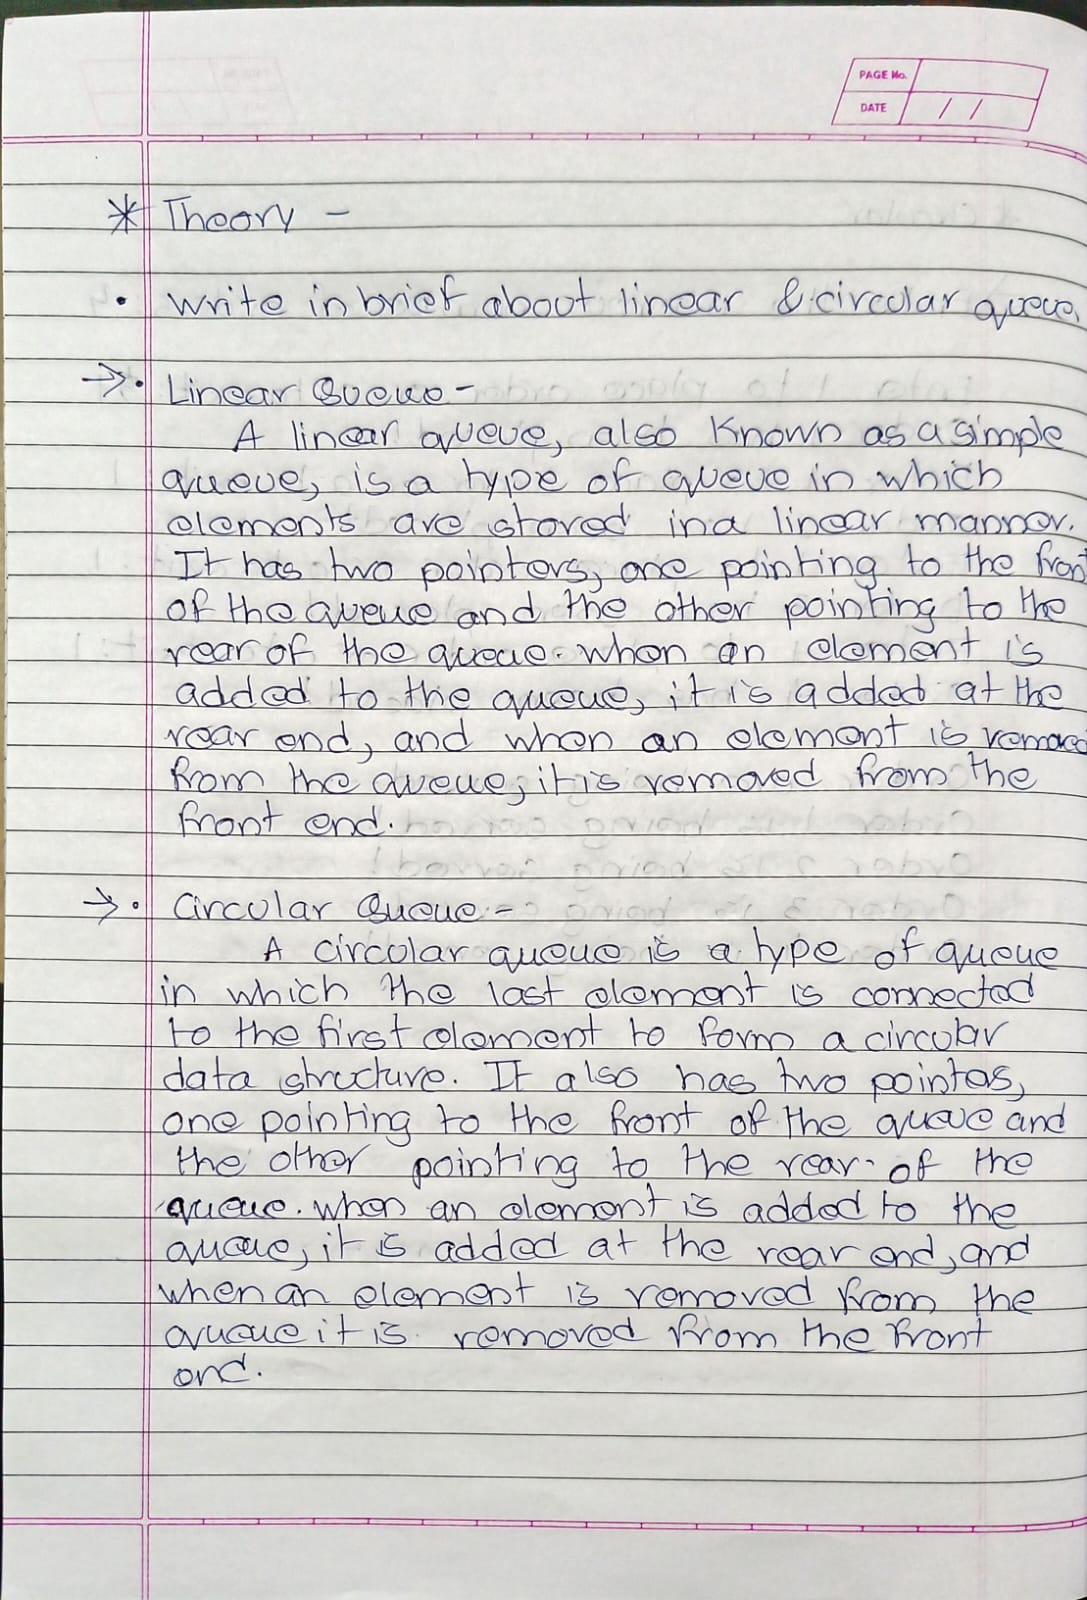 PAGE No.
DATE / /
* Theory -
• Write in brief about linear & circular queue.
→• Linear Queue -
A linear queue, also known as a simple
queue, is a type of queue in which
elements are stored in a linear manner.
It has two pointers, one pointing to the front
of the queue and the other pointing to the
rear of the queue. when an element is
added to the queue, it is added at the
rear end, and when an element is removed
from the queue, it is removed from the
front end.
→• Circular Queue -
A circular queue is a type of queue
in which the last element is connected
to the first element to form a circular
data structure. It also has two pointers,
one pointing to the front of the queue and
the other pointing to the rear of the
queue. when an element is added to the
queue, it is added at the rear end, and
when an element is removed from the
queue it is removed from the front
end.